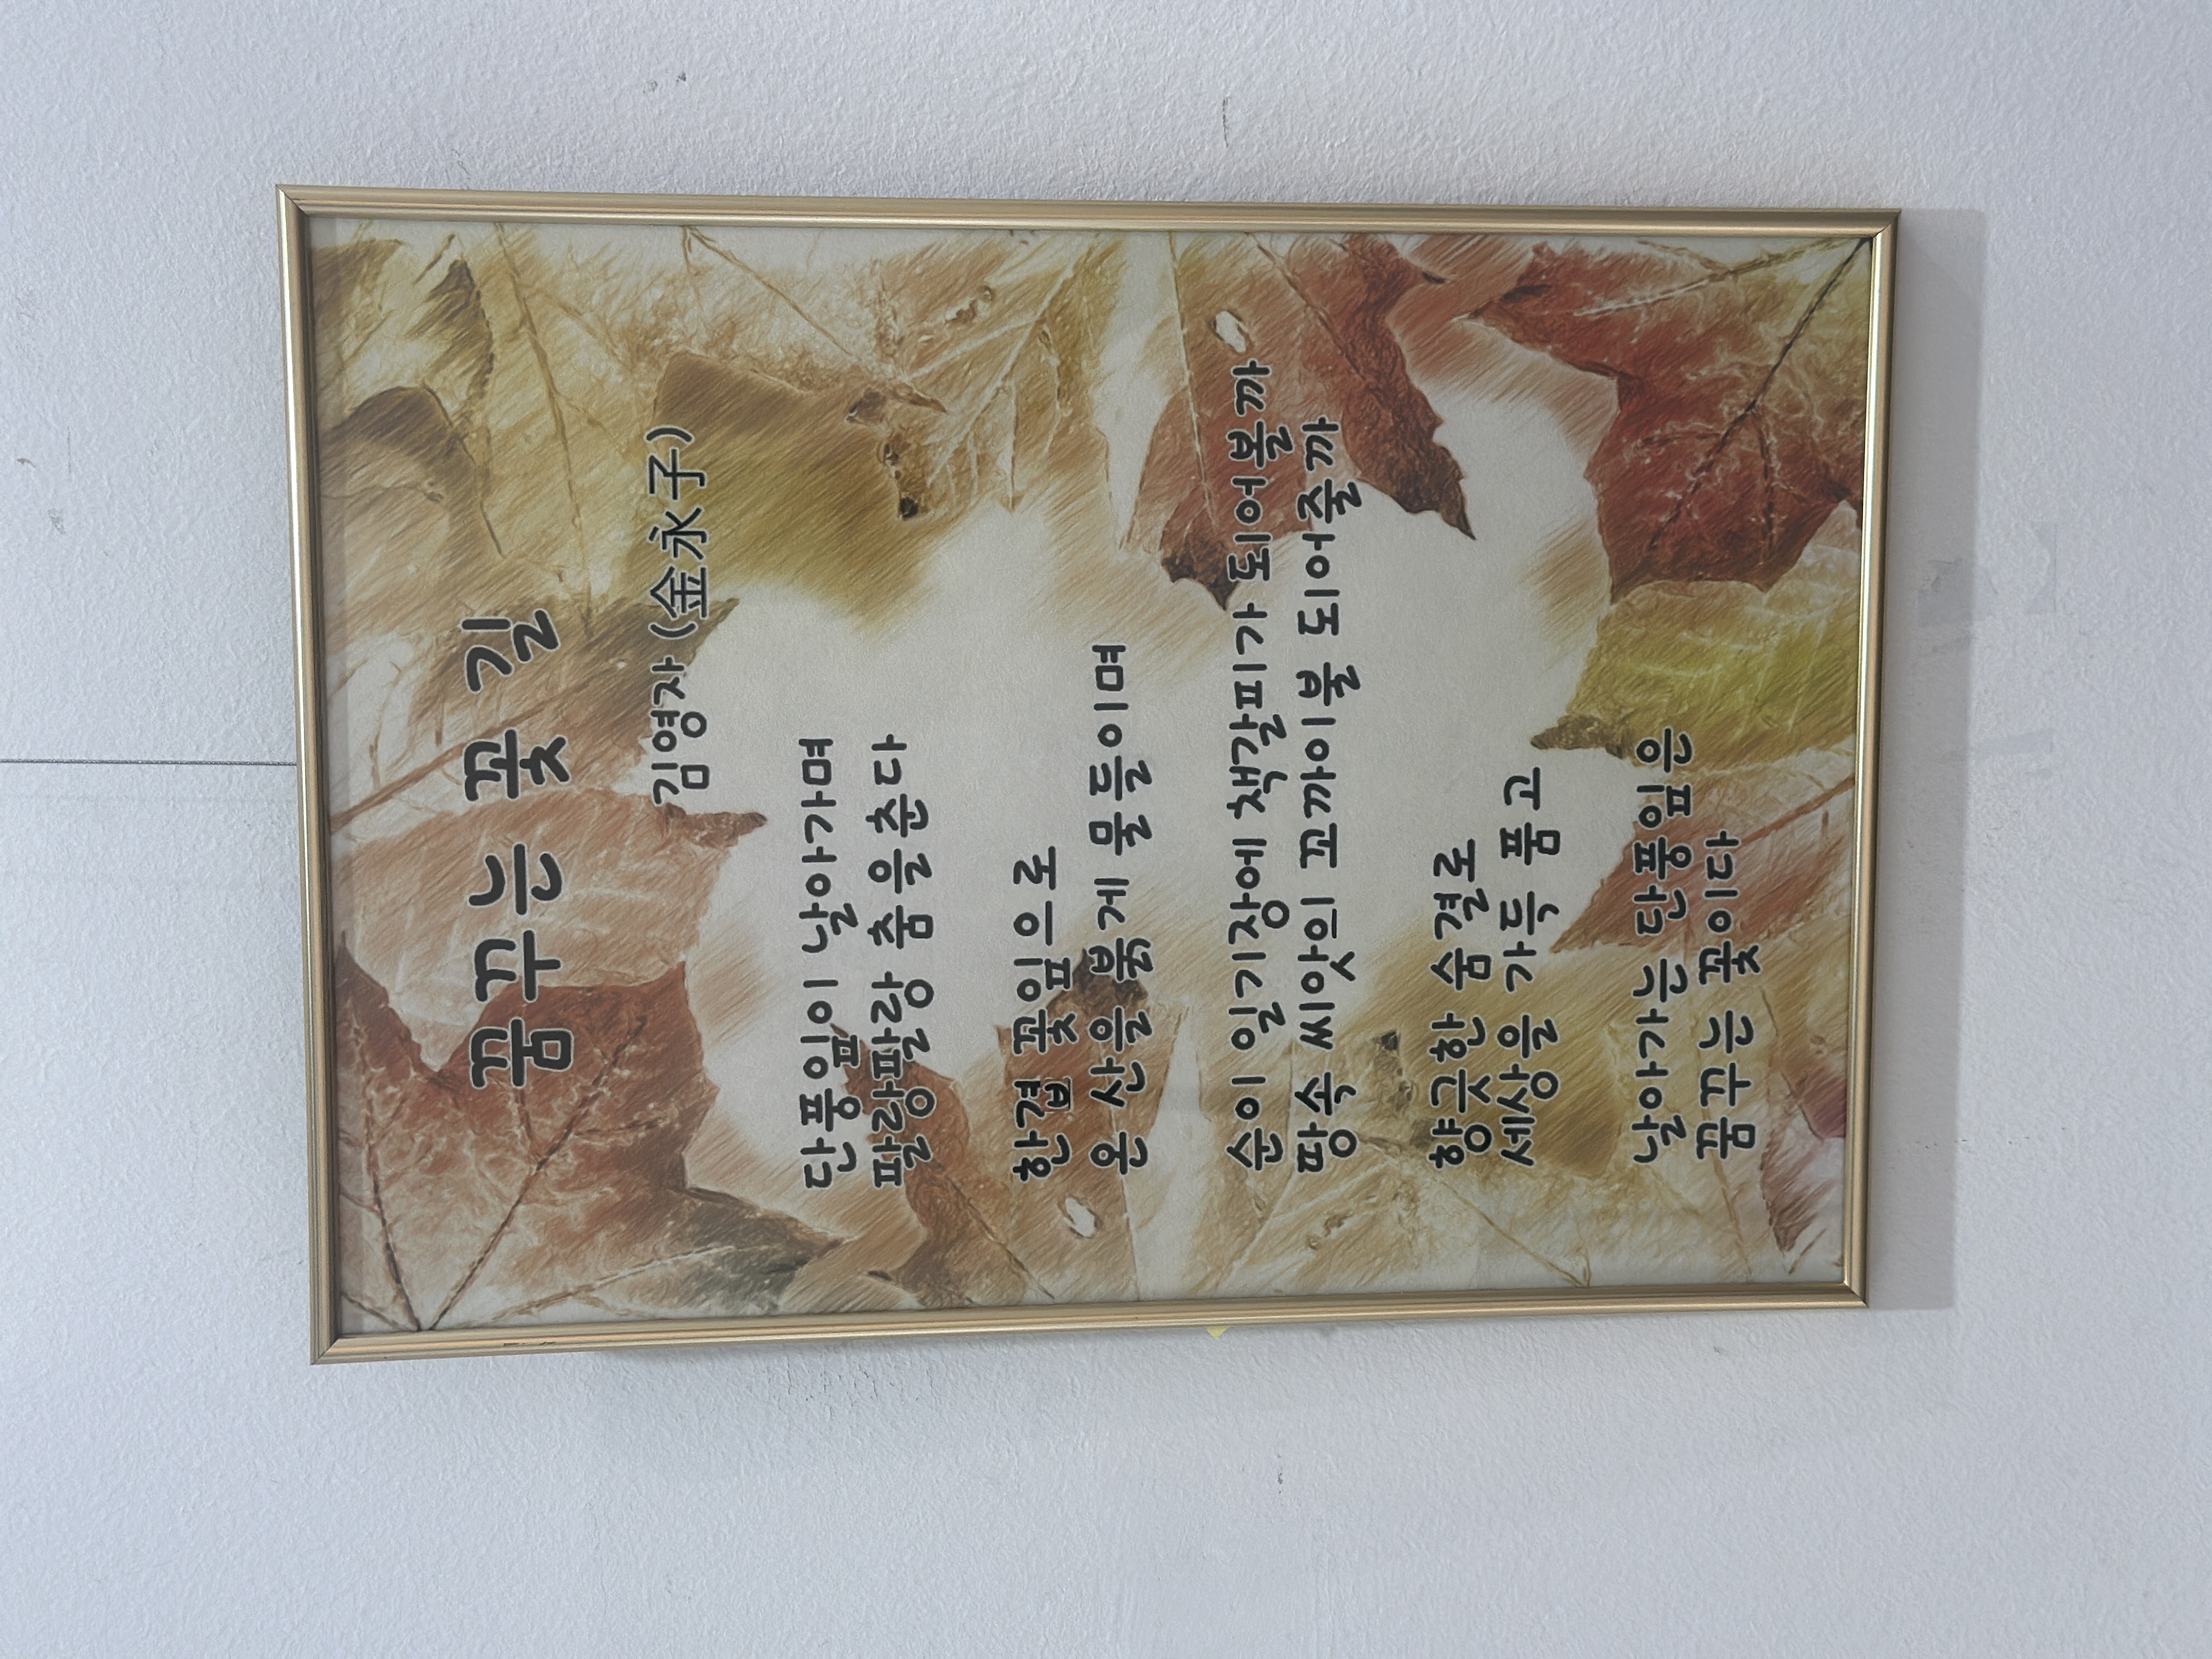 꿈꾸는 꽃 길
김영자 (金永子)
단풍잎이 날아가며
팔랑팔랑 춤을 춘다
한겹 꽃잎으로
온 산을 붉게 물들이며
순이 일기장에 책갈피가 되어볼까
땅속 씨앗의 꼬까이불 되어줄까
향긋한 숨결로
세상을 가득 품고
날아가는 단풍잎은
꿈꾸는 꽃이다